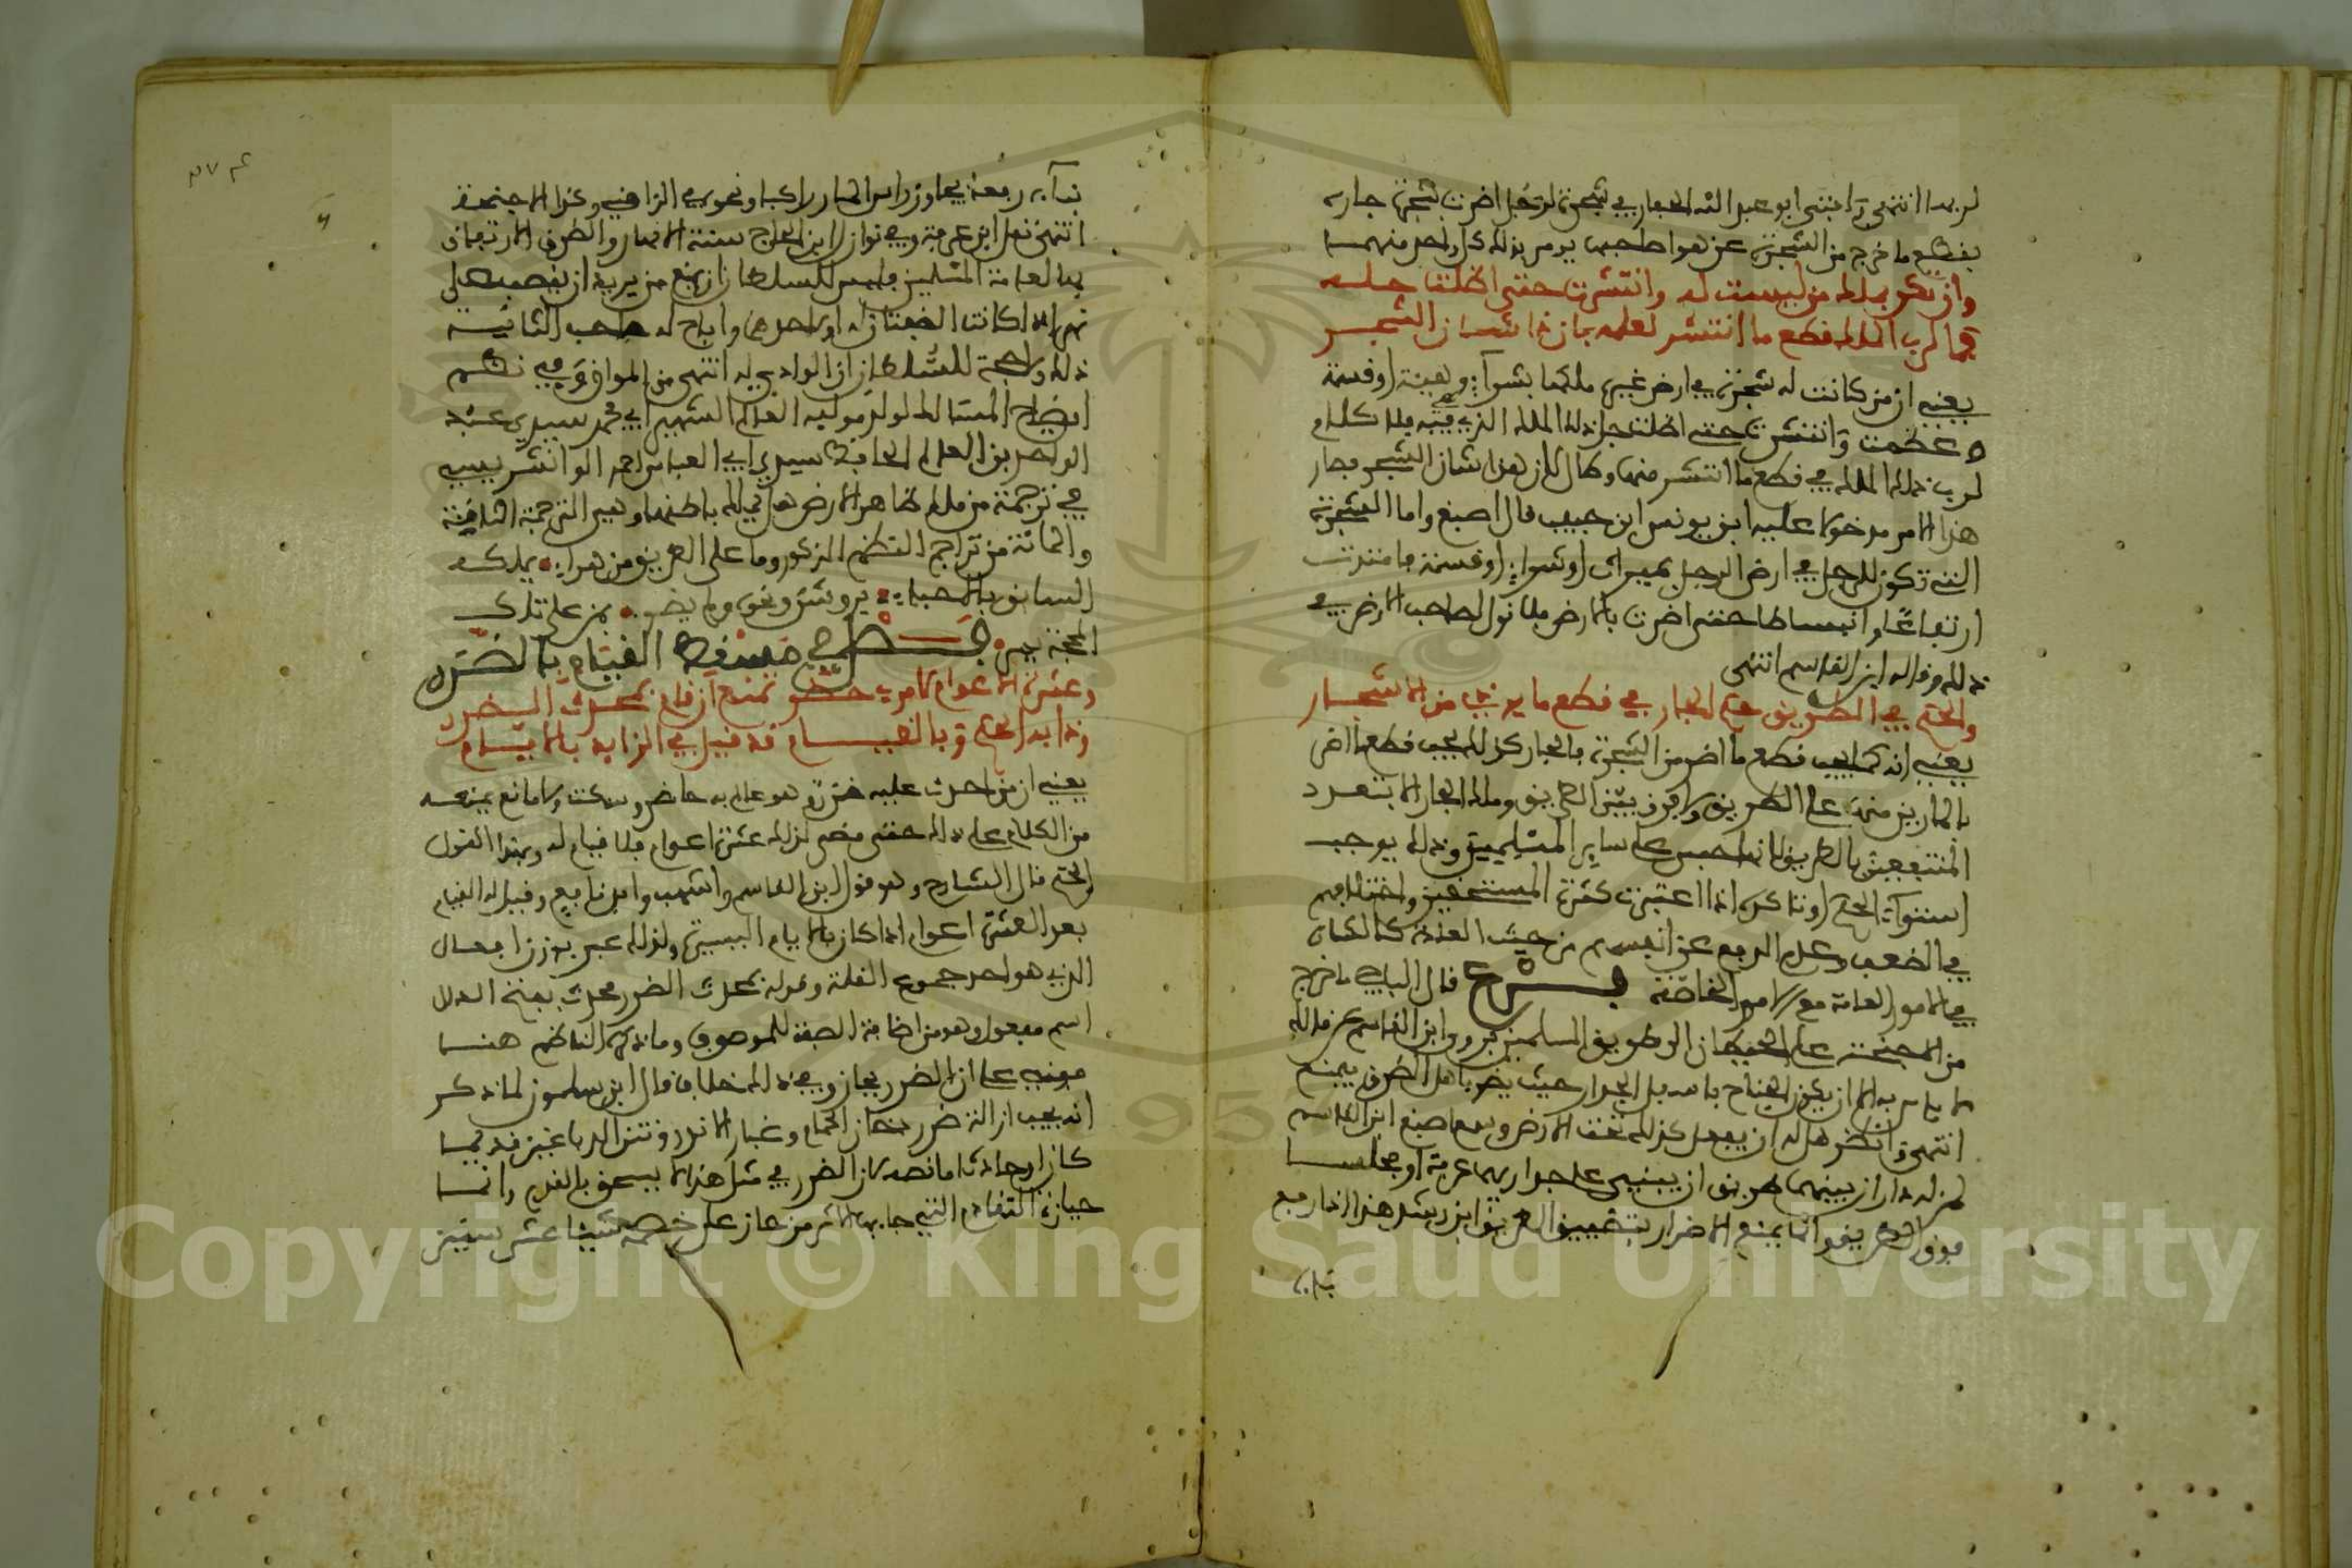 لربها انتهى وافتى ابو عبد الله الحفار في شجرة لرجل اضرت بشجرة جاره
بقطع ما خرج من الشجرة عن هوا صاحبها يومر بذلك كل واحد منهما
وان تكن بملك من ليست له وانتشرت حتى اظلت جله
فما لرب الملك قطع ما انتشر لعلمه بان ذا شان الشجر
يعني ان من كانت له شجرة في ارض غيره ملكها بشراء وهبة او قسمة
وعظمت وانتشرت حتى اظلت جل ذلك الملك الذي هي فيه فلا كلام
لرب ذلك الملك في قطع ما انتشر منها وطال لان هذا شان الشجر فصار
هذا الامر مدخولا عليه ابن يونس ابن حبيب قال اصبغ واما الشجرة
التي تكون للرجل في ارض الرجل بميراث او شراء او قسمة فامتدت
ارتفاعا وانبساطا حتى اضرت بالارض فلا قول لصاحب الارض في
ذلك وقاله ابن القاسم انتهى
والحكم في الطريق حكم الجار في قطع ما يوذي من الاشجار
يعني انه كما يجب قطع ما اضر من الشجرة بالجار كذلك يجب قطع ما اضر
بالمارين منها على الطريق ولا فرق بين الطريق وملك الجار الا بتعدد
المنتفعين بالطريق لانها حبس على ساير المسلمين وذلك يوجب
استواء الحكم او تاكده اذا اعتبرت كثرة المستحقين واختلافهم
في الضعف وعدم الدفع عن انفسهم من حيث العادة كالكتاب
في الامور العامة مع الامور الخاصة فرع قال الباجي ما خرج
من الاجنحة على الحيطان الى طريق المسلمين فروى ابن القاسم عن مالك
لا باس به الا ان يكون الجناح باسفل الجدار حيث يضر باهل الطرق فيمنع
انتهى وانظر هل له ان يفعل كذلك تحت الارض وسمع اصبغ ابن القاسم
لمن له داران بينهما طريق ان يبني على جداريهما غرفة او مجلسا
فوق الطريق وانما يمنع الاضرار بتضييق الطريق ابن رشد هذا اذا رفع
بناءه
بناءه رفعة يجاوز راس المار راكبا ونحوه في الزاهي وكذا الاجنحة
انتهى نقل ابن عرفة وفي نوازل ابن الحاج سنة الانهار والطرق الارتفاق
بها لعامة المسلمين فليس للسلطان ان يمنع من يريد ان ينصب على
نهر الا اذا كانت الضفتان له او احدهما واباح له صاحب الثانية
ذلك ولا حجة للسلطان ان الوادي له انتهى من المواق وفي نظم
ايضاح المسالك لولد مولفه العالم الشهير ابي محمد سيدي عبد
الواحد بن العالم الحافظ سيدي ابي العباس احمد الوانشريسي
في ترجمة من ملك ظاهر الارض هل يملك باطنها وهي الترجمة الثامنة
والمائة من تراجم النظم المذكور وما على الطريق من هواء يملكه
السابق بالاحياء
الحجة بين فصل في مسقط القيام بالضرر
وعشرة الاعوام لامرئ حضر تمنع ان قام بمحدث الضرر
وذا به الحكم وبالقيام قد قيل في الزايد بالايام
يعني ان من احدث عليه ضرر وهو عالم به حاضر وسكت ولا مانع يمنعه
من الكلام على ذلك حتى مضى لذلك عشرة اعوام فلا قيام له وبهذا القول
الحكم قال الشارح وهو قول ابن القاسم واشهب وابن نافع وقيل له القيام
بعد العشرة اعوام اذا كان بالايام اليسيرة ولذلك عبر بوزن افعال
الذي هو احد جموع القلة وقوله بمحدث الضرر محدث بفتح الدال
اسم مفعول وهو من اضافة الصفة للموصوف وما ذكره الناظم هنا
مبني على ان الضرر يحاز وفي ذلك خلاف قال ابن سلمون لما ذكر
انه يجب ازالة ضرر دخان الحمام وغبار الاندر ونتن الدباغين قديما
كان او حادثا ما نصه لان الضرر في مثل هذا لا يستحق بالقدم وانما
حيازة التقادم التي جاء بها الاثر من حاز على خصمه شيئا عشر سنين